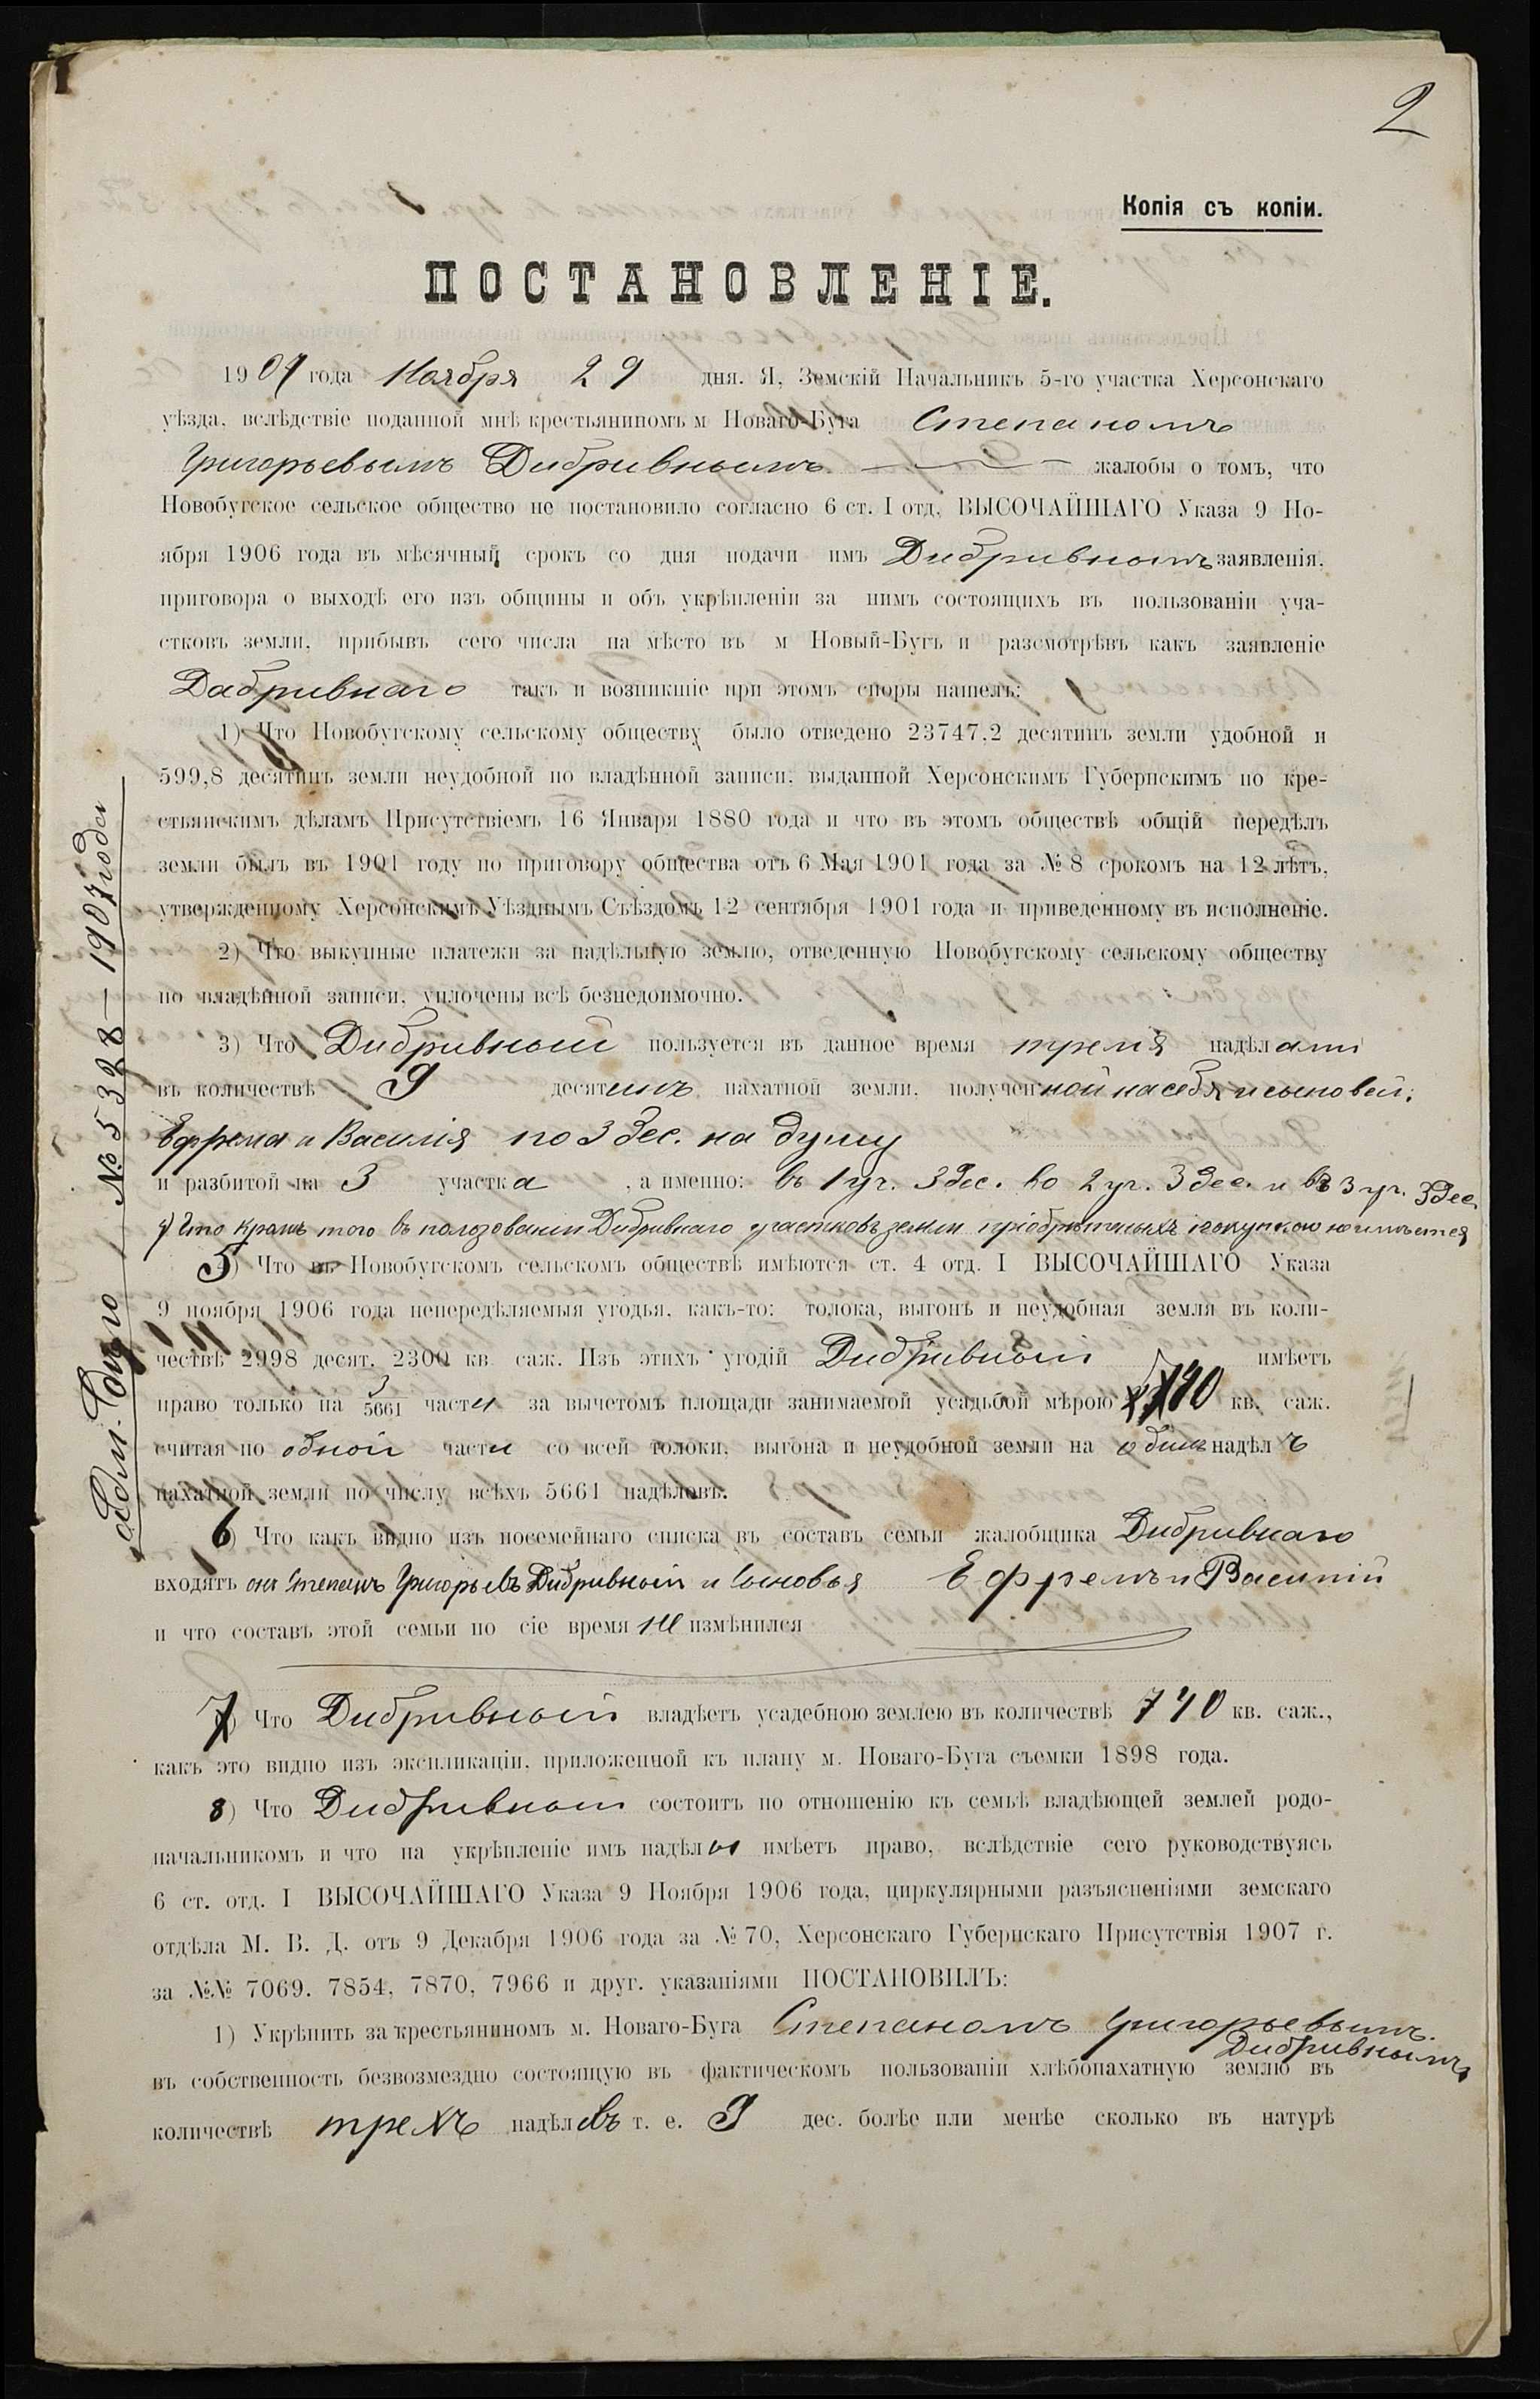 2
Копія съ копіи.
ПОСТАНОВЛЕНІЕ.
1907 года Ноября 29 дня. Я, Земскій Начальникъ 5-го участка Херсонскаго
уѣзда, вслѣдствіе поданной мнѣ крестьяниномъ м Новаго-Буга Степаномъ
Григорьевымъ Дибривнымъ жалобы о томъ, что
Новобугское сельское общество не постановило согласно 6 ст. I отд. ВЫСОЧАЙШАГО Указа 9 Но-
ября 1906 года въ мѣсячный срокъ со дня подачи имъ Дибривнымъ заявленія,
приговора о выходѣ его изъ общины и объ укрѣпленіи за нимъ состоящихъ въ пользованіи уча-
стковъ земли, прибывъ сего числа на мѣсто въ м Новый-Бугъ и разсмотрѣвъ какъ заявленіе
Дабривнаго такъ и возникшіе при этомъ споры нашелъ:
1) Что Новобугскому сельскому обществу было отведено 23747,2 десятинъ земли удобной и
599,8 десятинъ земли неудобной по владѣнной записи, выданной Херсонскимъ Губернскимъ по кре-
стьянскимъ дѣламъ Присутствіемъ 16 Января 1880 года и что въ этомъ обществѣ общій передѣлъ
земли былъ въ 1901 году по приговору общества отъ 6 Мая 1901 года за № 8 срокомъ на 12 лѣтъ,
утвержденному Херсонскимъ Уѣзднымъ Съѣздомъ 12 сентября 1901 года и приведенному въ исполненіе.
2) Что выкупные платежи за надѣльную землю, отведенную Новобугскому сельскому обществу
по владѣнной записи, уплочены всѣ безнедоимочно.
3) Что Дибривный пользуется въ данное время тремя надѣлами
въ количествѣ 9 десятинъ пахатной земли, полученной на себя и сыновей:
Ефрема и Василія по 3 дес. на душу
и разбитой на 3 участка, а именно: въ 1 уч. 3 дес. во 2 уч. 3 дес. и въ 3 уч. 3 дес.
4) Что кромѣ того въ пользованіи Дибривнаго участковъ земли пріобрѣтенныхъ покупкою не имѣется
5) Что въ Новобугскомъ сельскомъ обществѣ имѣются ст. 4 отд. I ВЫСОЧАЙШАГО Указа
9 ноября 1906 года непередѣляемыя угодья, какъ-то: толока, выгонъ и неудобная земля въ коли-
чествѣ 2998 десят. 2300 кв саж. Изъ этихъ угодій Дибривный имѣетъ
право только на 3/5661 части за вычетомъ площади занимаемой усадьбой мѣрою 740 кв. саж.
считая по одной части со всей толоки, выгона и неудобной земли на одинъ надѣлъ
пахатной земли по числу всѣхъ 5661 надѣловъ.
6) Что какъ видно изъ посемейнаго списка въ составъ семьи жалобщика Дибривнаго
входятъ онъ Степанъ Григорьевъ Дибривный и сыновья Ефремъ и Василій
и что составъ этой семьи по сіе время не измѣнился
7) Что Дибривный владѣетъ усадебною землею въ количествѣ 740 кв. саж.,
какъ это видно изъ экспликаціи, приложенной къ плану м. Новаго-Буга съемки 1898 года.
8) Что Дибривный состоитъ по отношенію къ семьѣ владѣющей землей родо-
начальникомъ и что на укрѣпленіе имъ надѣлы имѣетъ право, вслѣдствіе сего руководствуясь
6 ст. отд. I ВЫСОЧАЙШАГО Указа 9 Ноября 1906 года, циркулярными разъясненіями земскаго
отдѣла М. В. Д. отъ 9 Декабря 1906 года за № 70, Херсонскаго Губернскаго Присутствія 1907 г.
за №№ 7069. 7854, 7870, 7966 и друг. указаніями ПОСТАНОВИЛЪ:
1) Укрѣпить за крестьяниномъ м. Новаго-Буга Степаномъ Григорьевымъ
Дибривнымъ
въ собственность безвозмездно состоящую въ фактическомъ пользованіи хлѣбопахатную землю въ
количествѣ трехъ надѣловъ т. е. 9 дес. болѣе или менѣе сколько въ натурѣ
№ 5328—1907 года